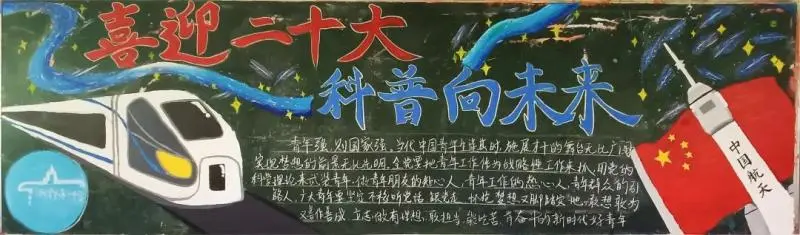 喜迎二十大
科普向未来
青年强,则国家强。当代中国青年生逢其时,施展才干的舞台无比广阔
实现梦想的前景无比光明。全党要把青年工作作为战略性工作来抓,用党的
科学理论武装青年,做青年朋友的知心人,青年工作的热心人,青年群众的引
路人。广大青年要坚定不移听党话、跟党走,怀抱梦想又脚踏实地,敢想敢为
又善作善成,立志做有理想、敢担当、能吃苦、肯奋斗的新时代好青年
中国航天